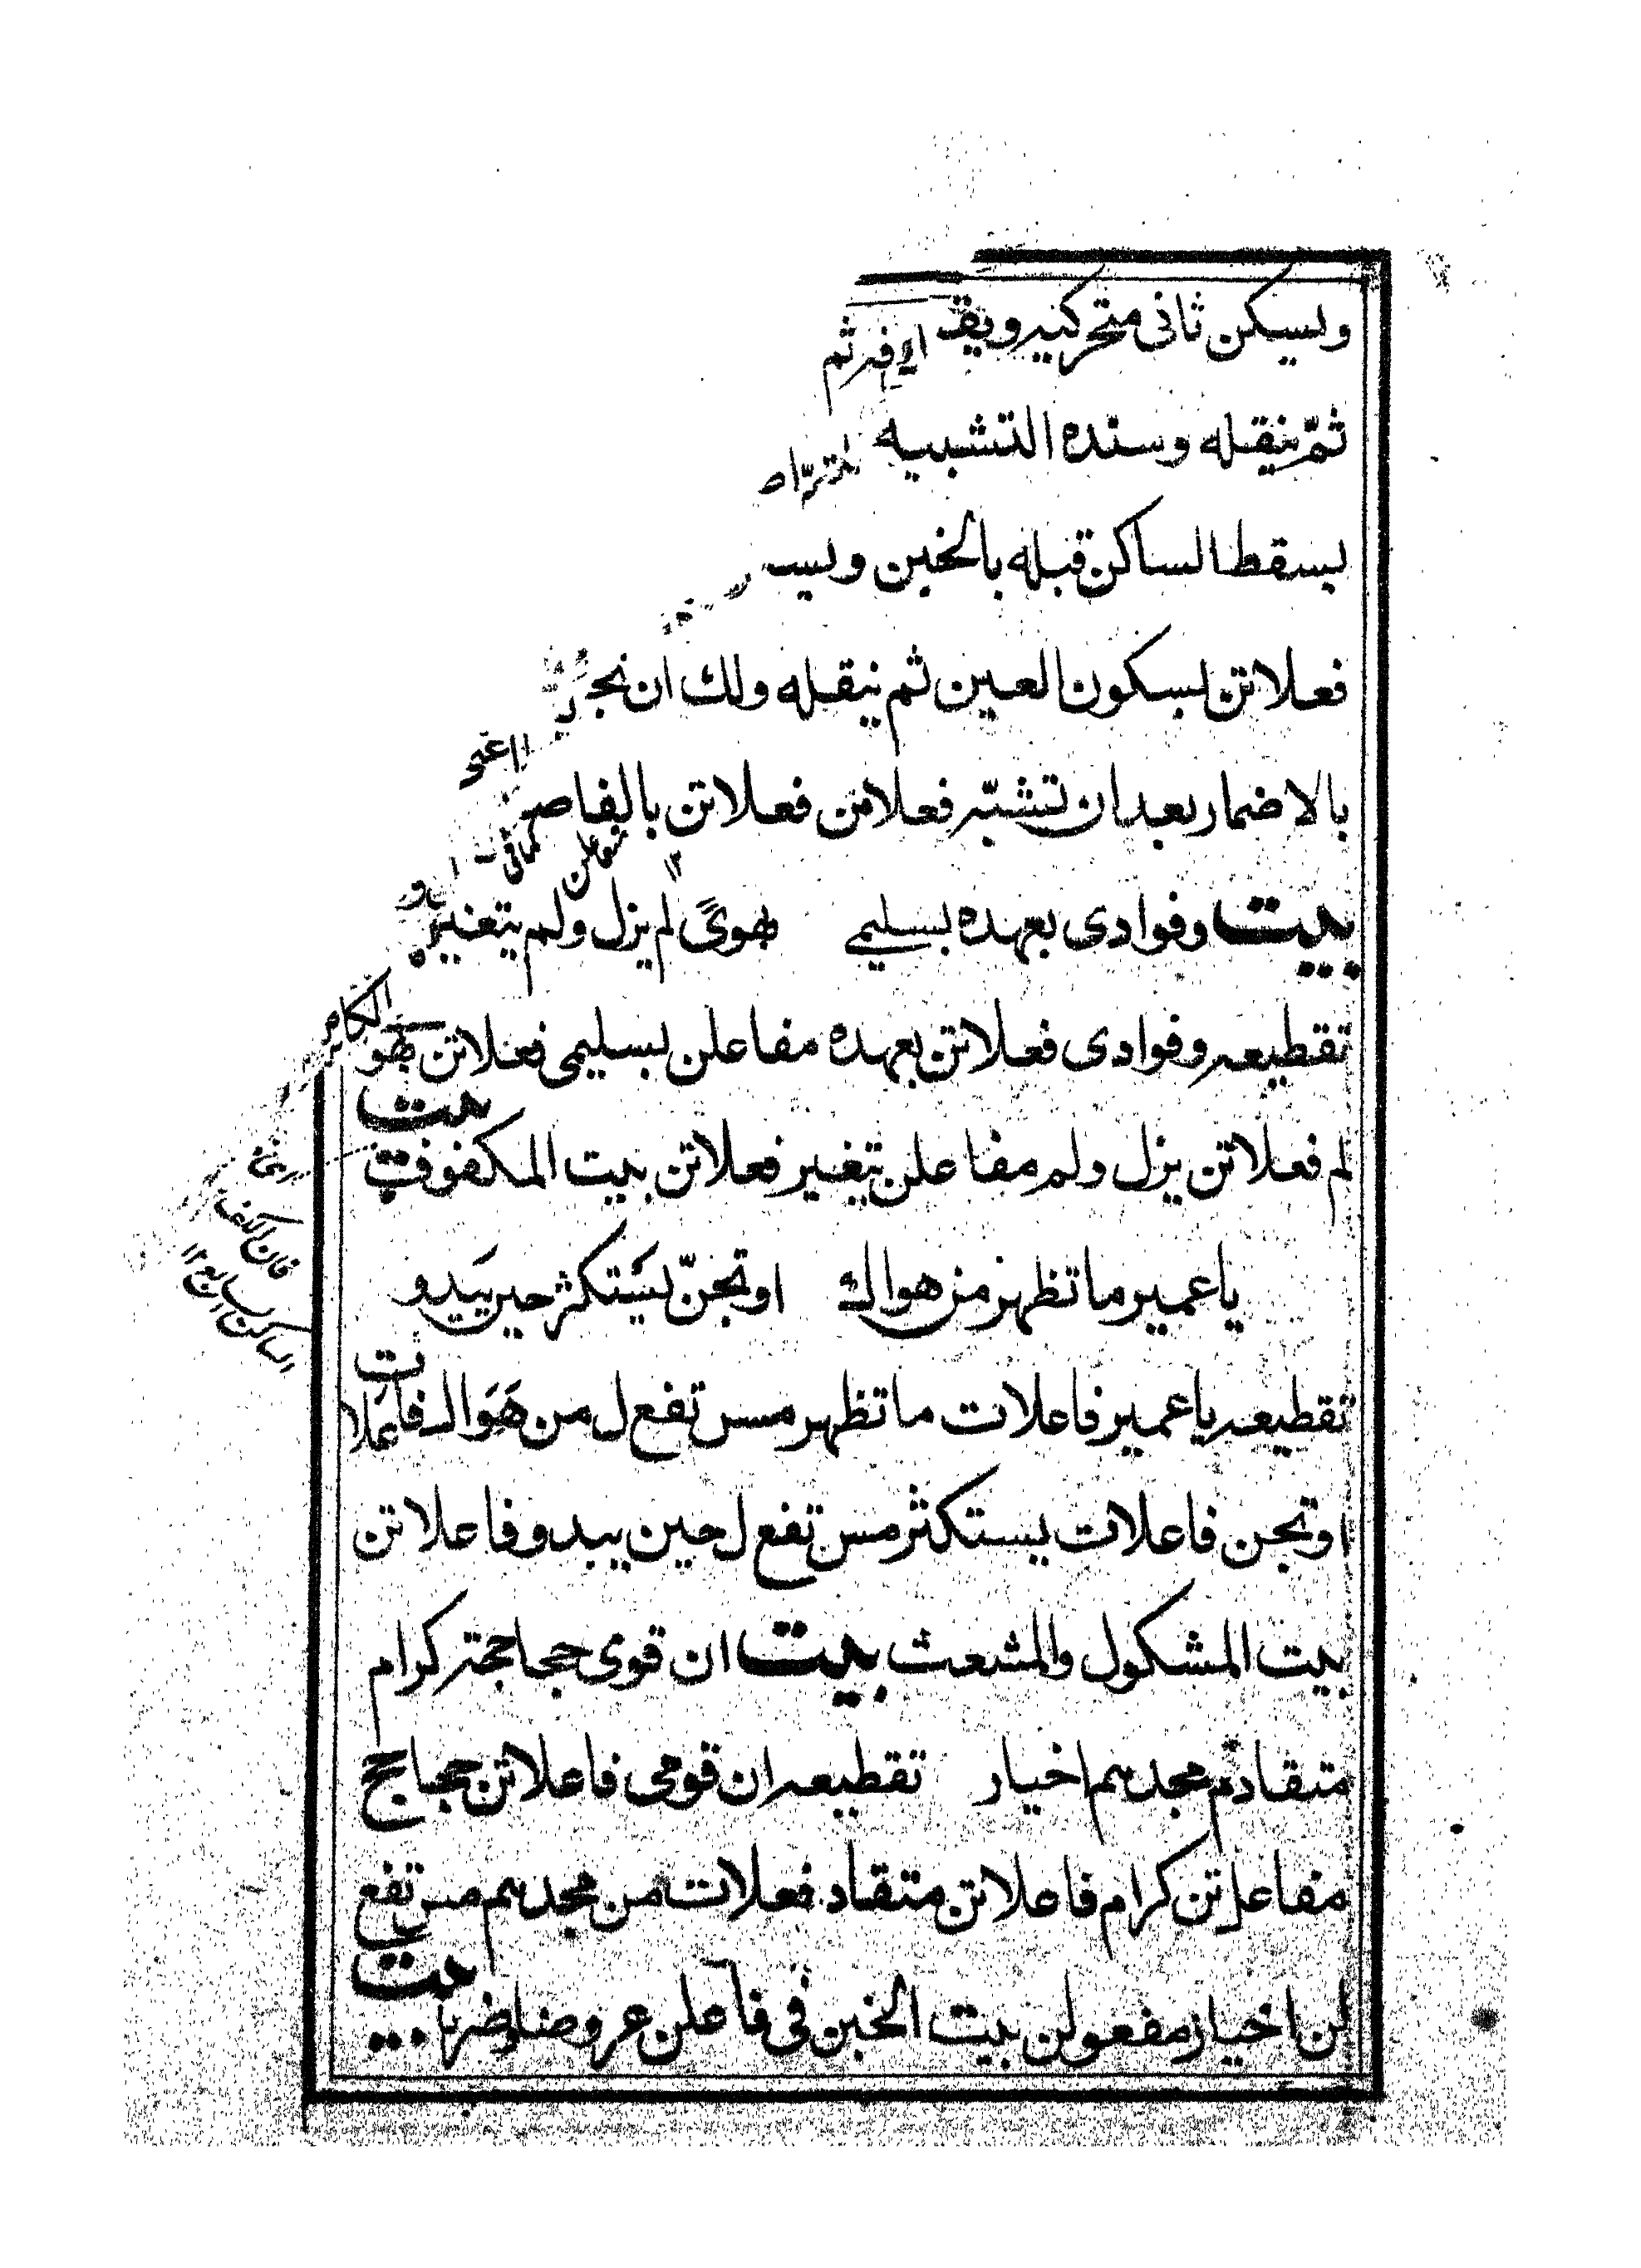 ويسكن ثانى متحركيه ويق
ثمّ ينقله وسنده التشبيه
يسقط الساكن قبله بالخبن ويس
فعلاتن بسكون العين ثم ينقله ولك ان نجر
بالاضمار بعد ان تشبّه فعلاتن فعلاتن بالفاصر
بيت وفوادى بعهده بسليمى هوىً لم يزل ولم يتغير
تقطيعه وفوادى فعلاتن بعهده مفاعلن بسليمى فعلاتن هو
لم فعلاتن يزل ولم مفاعلن يتغير فعلاتن بيت المكفوف بيت
يا عمير ما تظهر من هواك او تجنّ يستكثر حين يبدو
تقطيعه يا عمير فاعلات ما تظهر مس تفع ل من هَوَاك فاعلات
او تجن فاعلات يستكثر مس تفع ل حين يبدو فاعلاتن
بيت المشكول والمشعث بيت ان قوى حجاجحة كرام
متقادم مجدهم اخيار تقطيعه ان قومى فاعلاتن حجاجح
مفاعل تن كرام فاعلاتن متقاد فعلات من مجدهم مس تفع
لن اخيار مفعولن بيت الخبن فى فاعلن عروضا وضربا بيت
فان الكف
الساكن السابع ١٢